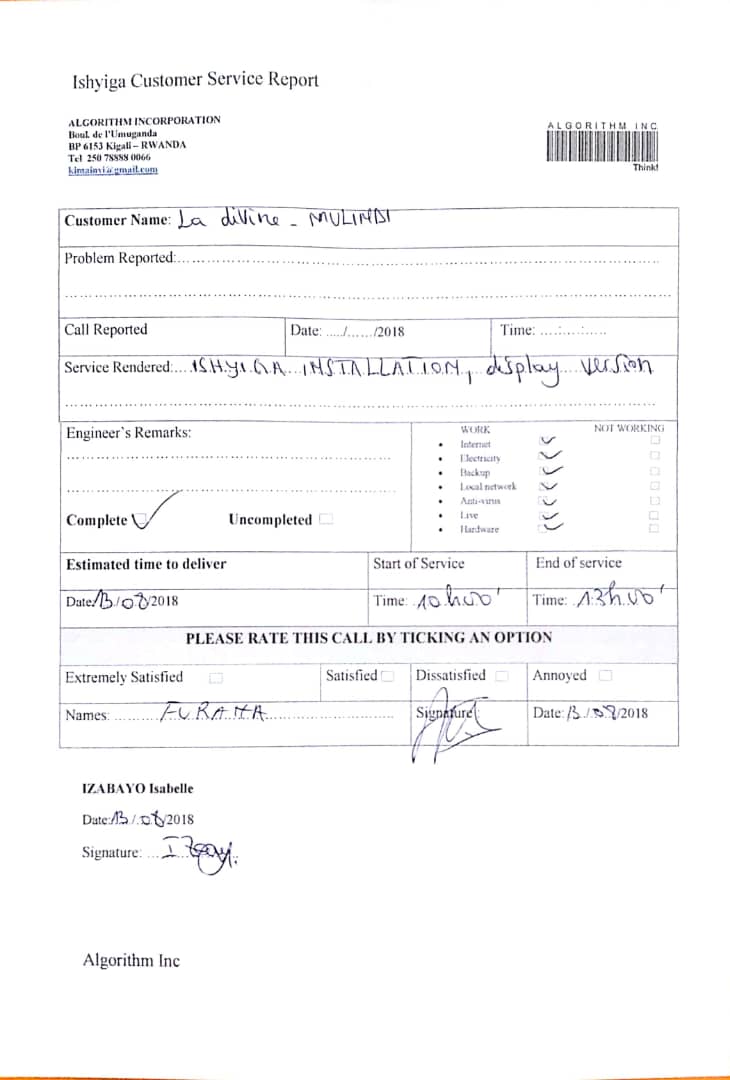 Ishyiga Customer Service Report
ALGORITHM INCORPORATION
Boul. de l'Umuganda
BP 6153 Kigali – RWANDA
Tel 250 78888 0066
kimainyi@gmail.com
ALGORITHM INC
Think!
Customer Name: La divine - MULINDI
Problem Reported:
Call Reported Date: ...../......./2018 Time: ....:....:.....
Service Rendered: ISHYIGA INSTALLATION, display version
Engineer's Remarks:
WORK NOT WORKING
Internet
Electricity
Backup
Local network
Anti-virus
Live
Hardware
Complete Uncompleted
Estimated time to deliver Start of Service End of service
Date: 13/08/2018 Time: 10h00' Time: 13h00'
PLEASE RATE THIS CALL BY TICKING AN OPTION
Extremely Satisfied Satisfied Dissatisfied Annoyed
Names: FURAHA Signature: Date: 13/08/2018
IZABAYO Isabelle
Date: 13/08/2018
Signature:
Algorithm Inc